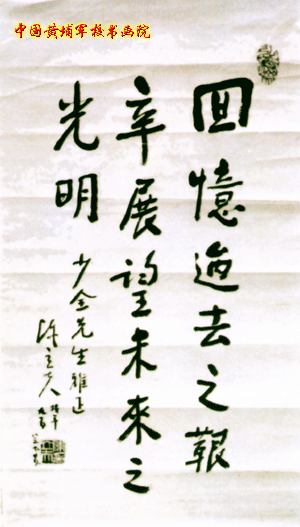 中国黄埔军校书画院
回憶過去之艱
辛展望未來之
光明
少金先生雅正